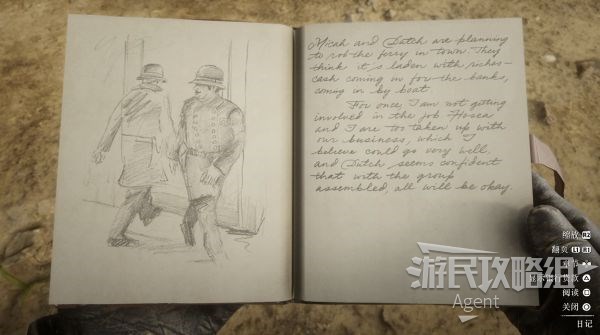 Micah and Dutch are planning
to rob the ferry in town. They
think it's laden with riches-
cash coming in for the banks,
coming in by boat.
For once, I am not getting
involved in the job. Hosea
and I are too taken up with
our business, which I
believe could go very well,
and Dutch seems confident
that with the group
assembled, all will be okay.
缩放 R2
翻页 L1 R1
阅读
关闭
日记
游民攻略组
Agent